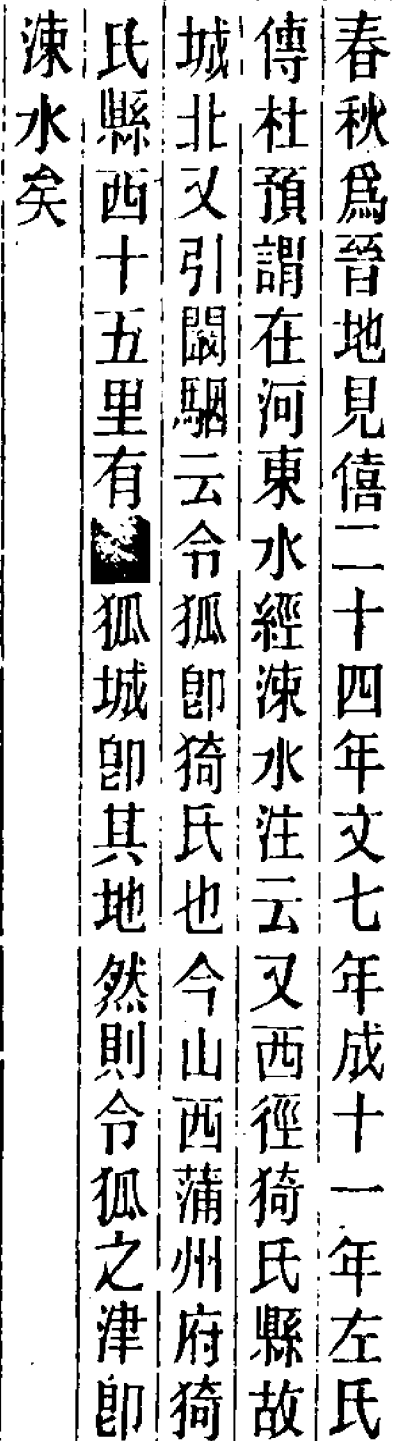 春秋爲晉地見僖二十四年文七年成十一年左氏
傳杜預謂在河東水經涑水注云又西徑猗氏縣故
城北又引闞駰云令狐卽猗氏也今山西蒲州府猗
氏縣西十五里有狐城卽其地然則令狐之津卽
涑水矣